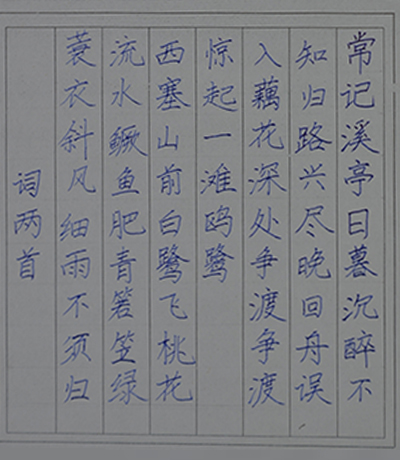 常记溪亭日暮沉醉不
知归路兴尽晚回舟误
入藕花深处争渡争渡
惊起一滩鸥鹭
西塞山前白鹭飞桃花
流水鳜鱼肥青箬笠绿
蓑衣斜风细雨不须归
词两首